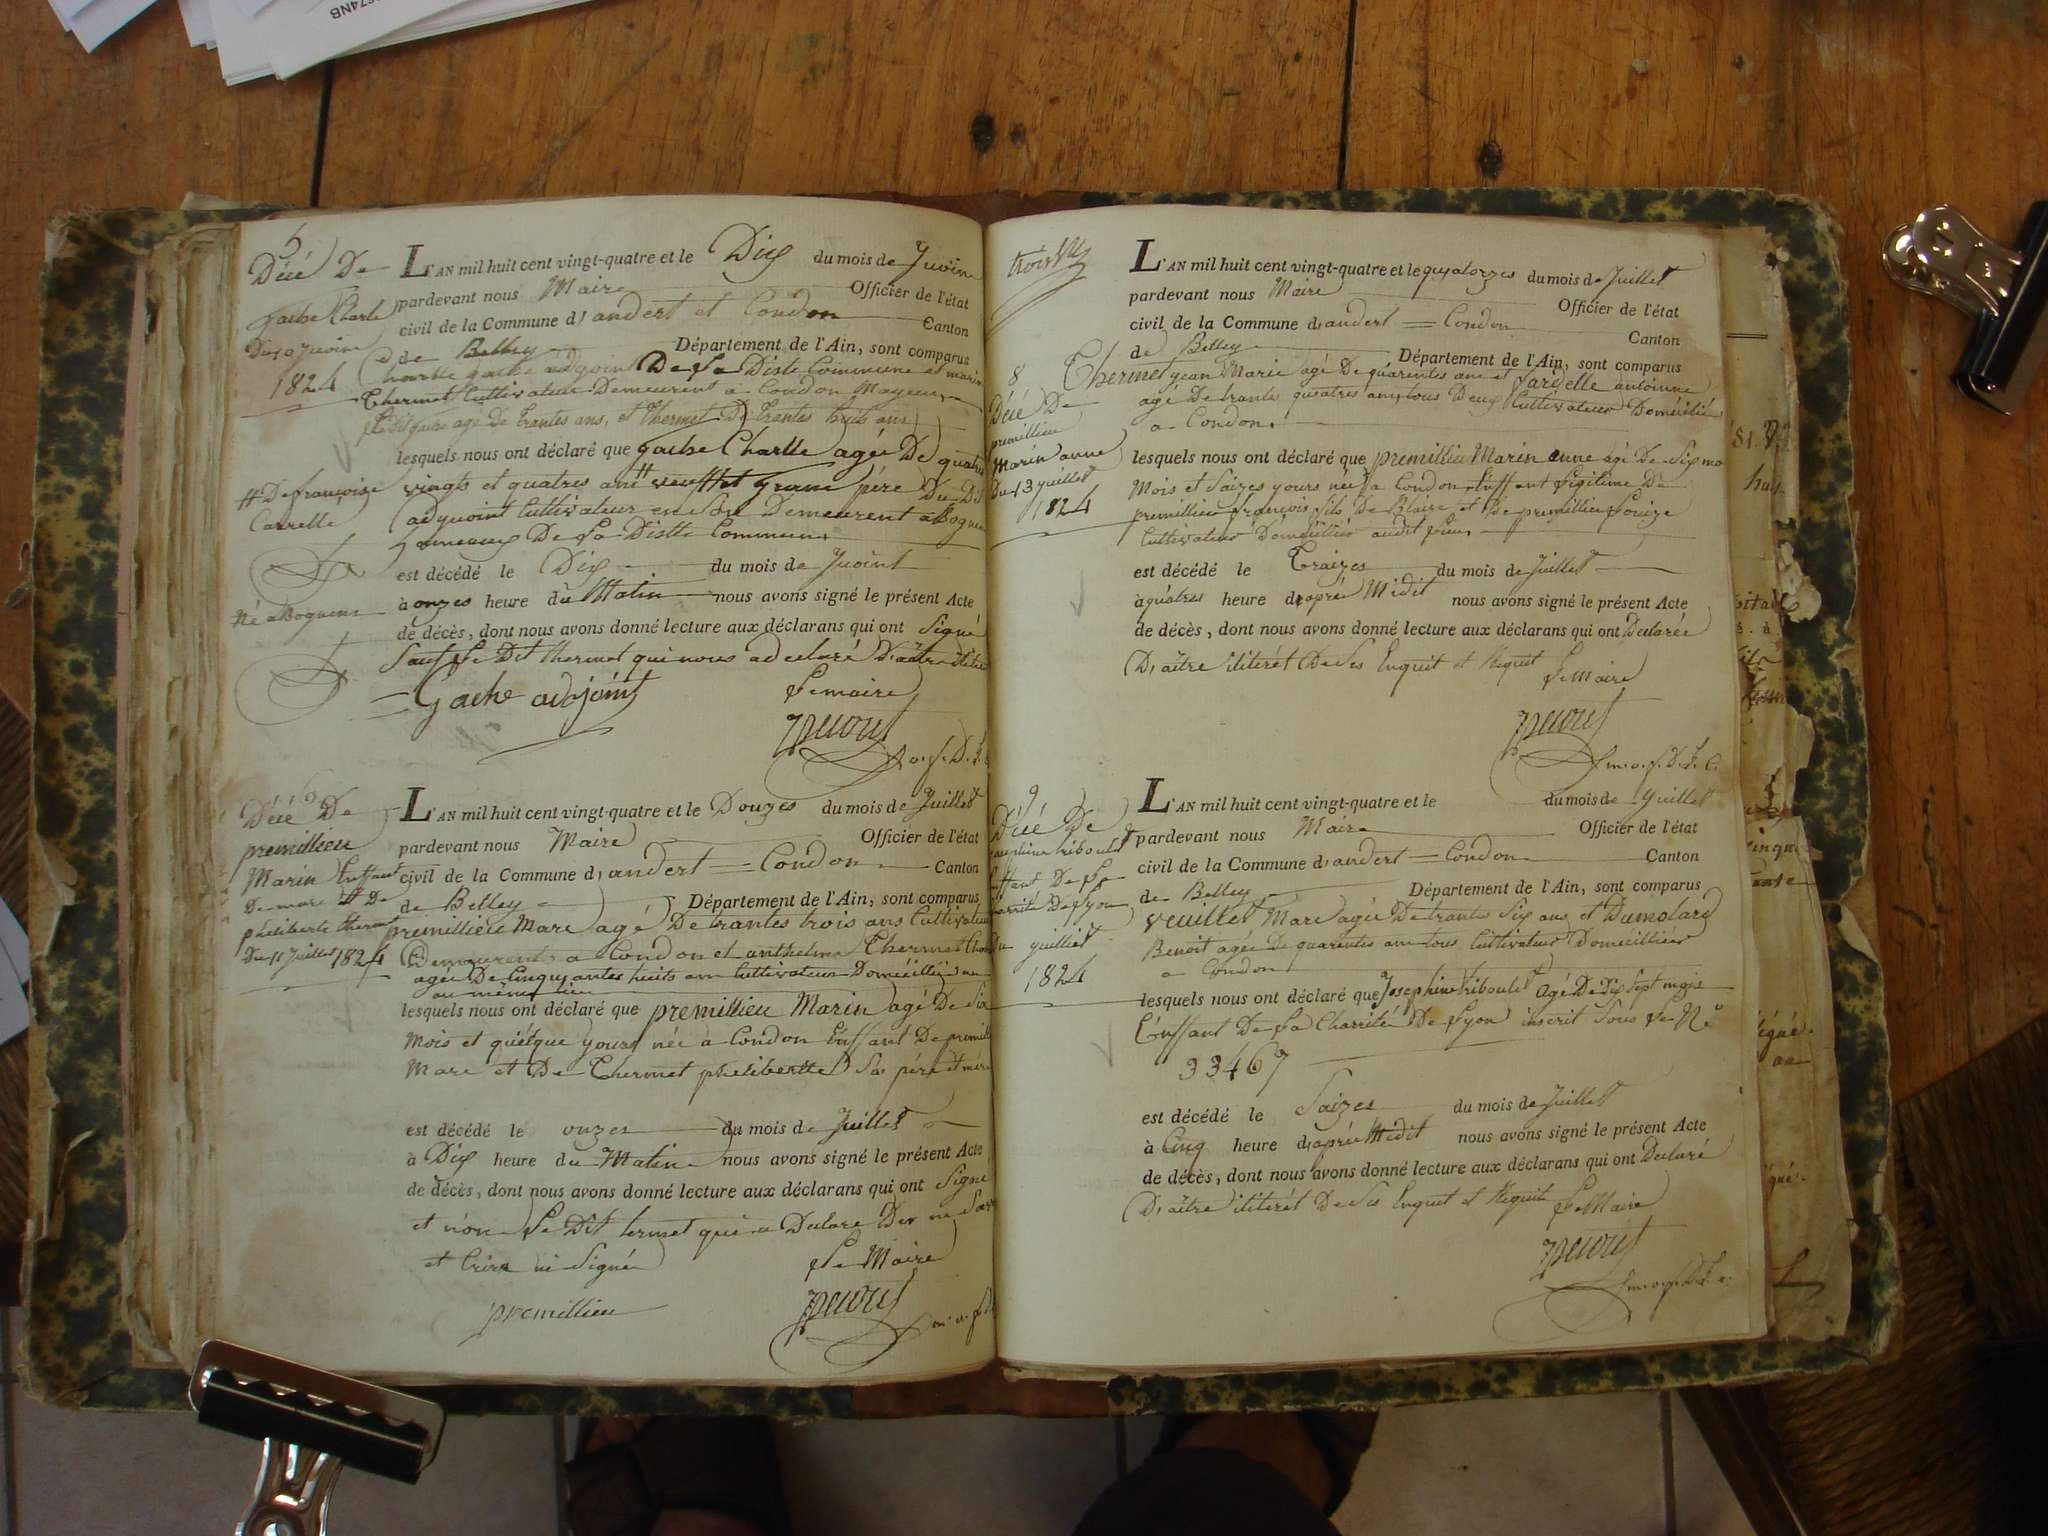 5
Décé De
gache Charle
Du 10 Juoin
1824
L'AN mil huit cent vingt-quatre et le Dix du mois de Juoin
pardevant nous Maire Officier de l'état
civil de la Commune d'andert et Condon Canton
de Belley Département de l'Ain, sont comparus
Charlle gache adjoint De La Diste Commune et marin
Thermet Cultivateur Demeurent a Condon
agé de trantes ans, et thermet De trantes huit ans
lesquels nous ont déclaré que gache Charlle agée De quatres
vingts et quatres ans veuff et père Du Dit
adjuoint Cultivateur en Son Demeurent a Bogneus
hameaux De La Distte Commune
# De françoise
Carrelle
est décédé le Dix du mois de Juoint
à onzes heure du Matin nous avons signé le présent Acte
Né a Bogneux
de décès, dont nous avons donné lecture aux déclarans qui ont Signé
Sauf Le Dit thermet qui nous a declaré D'aître
Gache adjoint Le maire
6
Décé De
premillieu
Marin Enffant
De marc et De
pheliberte therm
Du 11 Juillet 1824
L'AN mil huit cent vingt-quatre et le Douzes du mois de Juillet
pardevant nous Maire Officier de l'état
civil de la Commune d'andert = Condon Canton
de Belley Département de l'Ain, sont comparus
premillieu Marc agé De trantes trois ans Cultivateur
Demeurent a Condon et anthelme Thermet
agée De Cinquantes huits ans Cultivateur Doméeilliés
au même lieu
lesquels nous ont déclaré que premillieu Marin agé De Six
Mois et quélque yours née a Condon Enffant De premill
Marc et De Thermet pheliberte Sas père et mère
est décédé le onzes du mois de Juillet
à Dix heure du Matin nous avons signé le présent Acte
de décès, dont nous avons donné lecture aux déclarans qui ont Signé
et n'on Le Dit termet qui a Declare ne Sav
et Crire ni Signée Le Maire
premillieu
trois
8
Décé De
premillieu
Marin anne
Du 13 juillet
1824
L'AN mil huit cent vingt-quatre et le quatorzes du mois de Juillet
pardevant nous Maire Officier de l'état
civil de la Commune d'andert = Condon Canton
de Belley Département de l'Ain, sont comparus
Thermet Jean Marie agé De quarentes ans et Sardelle antoinne
agé De trants quatres ans tous Deux Cultivateur Doméeiliés
a Condon
lesquels nous ont déclaré que premillieu Marin anne agé De Six mo
Mois et Saizes yours née a Condon Enffant Légitime De
premillieu françois fils De Blaize et De premillieu Louize
Cultivateur Doméeiliés audit lieu
est décédé le Traizes du mois de Juillet
à quatres heure d'aprée Midit nous avons signé le présent Acte
de décès, dont nous avons donné lecture aux déclarans qui ont Declarée
D'aître ilitérét De Ses Enquit et Requit Le Maire
9
Décé De
riboulet
Enffant De La
Charrité De Lyon
Du juillet
1824
L'AN mil huit cent vingt-quatre et le du mois de Juillet
pardevant nous Maire Officier de l'état
civil de la Commune d'andert = Condon Canton
de Belley Département de l'Ain, sont comparus
veuillet Marc agée De trantes Six ans et Dumolard
Benoit agée De quarentes ans tous Cultivateur Doméeilliées
a Condon
lesquels nous ont déclaré que Josephine riboulet Agé De Dix Sept mois
Enffant De La Charrité De Lyon inscrit Sous Le No
33467
est décédé le Saizes du mois de Juillet
à Cinq heure d'aprée Midit nous avons signé le présent Acte
de décès, dont nous avons donné lecture aux déclarans qui ont Declaré
D'aître ilitérét De Ses Enquit et Requit Le Maire